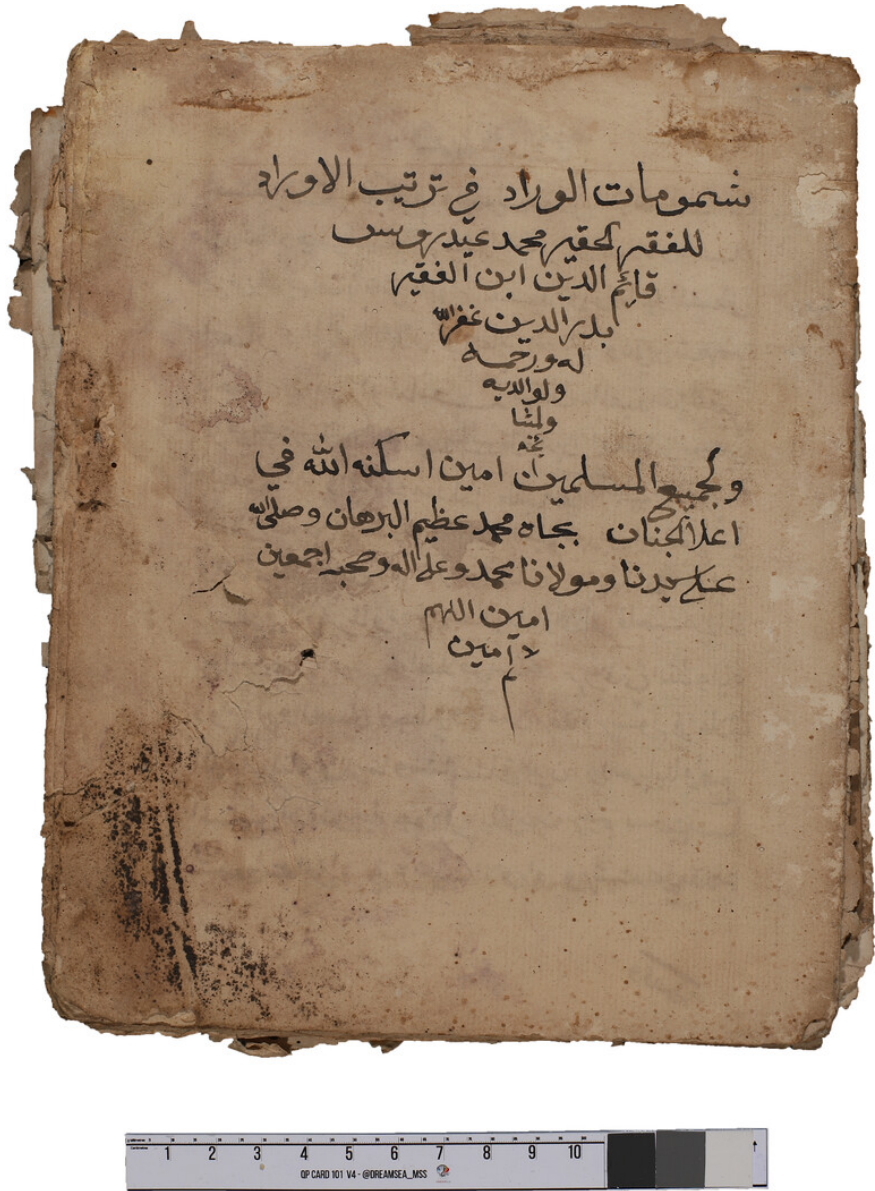 شمومات الوراد في ترتيب الاوراد
للفقير الحقير محمد عيدروس
قائم الدين ابن الفقير
بدر الدين غفر الله
له ورحمه
ولوالديه
ولمشا
يخه
ولجميع المسلمين امين اسكنه الله في
اعلا الجنان بجاه محمد عظيم البرهان وصلى الله
على سيدنا ومولانا محمد وعلى اله وصحبه اجمعين
امين اللهم
آمين
م
1 2 3 4 5 6 7 8 9 10
QP CARD 101 V4 - @DREAMSEA_MSS